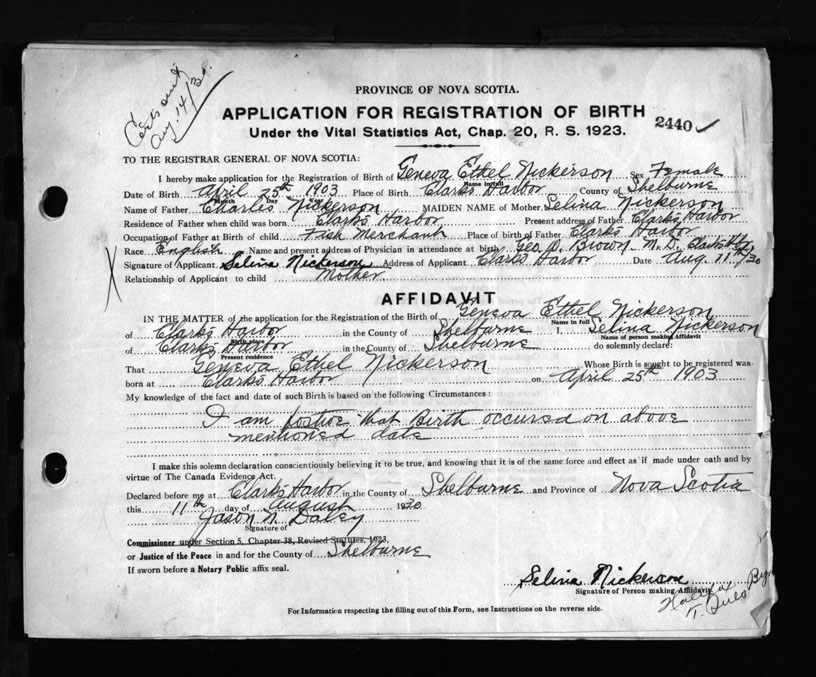 Certs sent
Aug. 14/30.
PROVINCE OF NOVA SCOTIA.
APPLICATION FOR REGISTRATION OF BIRTH
2440 ✓
Under the Vital Statistics Act, Chap. 20, R. S. 1923.
TO THE REGISTRAR GENERAL OF NOVA SCOTIA:
I hereby make application for the Registration of Birth of Geneva Ethel Nickerson Sex Female
Name in full
Date of Birth April 25th 1903 Place of Birth Clarks Harbor County of Shelburne
Month Day Year
Name of Father Charles Nickerson MAIDEN NAME of Mother Selina Nickerson
Residence of Father when child was born Clarks Harbor Present address of Father Clarks Harbor
Occupation of Father at Birth of child Fish Merchant Place of birth of Father Clarks Harbor
Race English Name and present address of Physician in attendance at birth Geo D. Brown M.D. Clarks Hbr
Signature of Applicant Selina Nickerson Address of Applicant Clarks Harbor Date Aug. 11th/30
Relationship of Applicant to child Mother
AFFIDAVIT
IN THE MATTER of the application for the Registration of the Birth of Geneva Ethel Nickerson
Name in full
of Clarks Harbor in the County of Shelburne I, Selina Nickerson
Birth place Name of person making Affidavit
of Clarks Harbor in the County of Shelburne do solemnly declare:
Present residence
That Geneva Ethel Nickerson Whose Birth is sought to be registered was
born at Clarks Harbor on April 25th 1903
My knowledge of the fact and date of such Birth is based on the following Circumstances:
I am postive that Birth occured on above
mentioned date
I make this solemn declaration conscientiously believing it to be true, and knowing that it is of the same force and effect as if made under oath and by
virtue of The Canada Evidence Act.
Declared before me at Clarks Harbor in the County of Shelburne and Province of Nova Scotia
this 11th day of August 1930
Jason N. Daley
Signature of
Commissioner under Section 5, Chapter 38, Revised Statutes, 1923,
or Justice of the Peace in and for the County of Shelburne
If sworn before a Notary Public affix seal.
Selina Nickerson
Signature of Person making Affidavit
Halifax
For Information respecting the filling out of this Form, see Instructions on the reverse side.